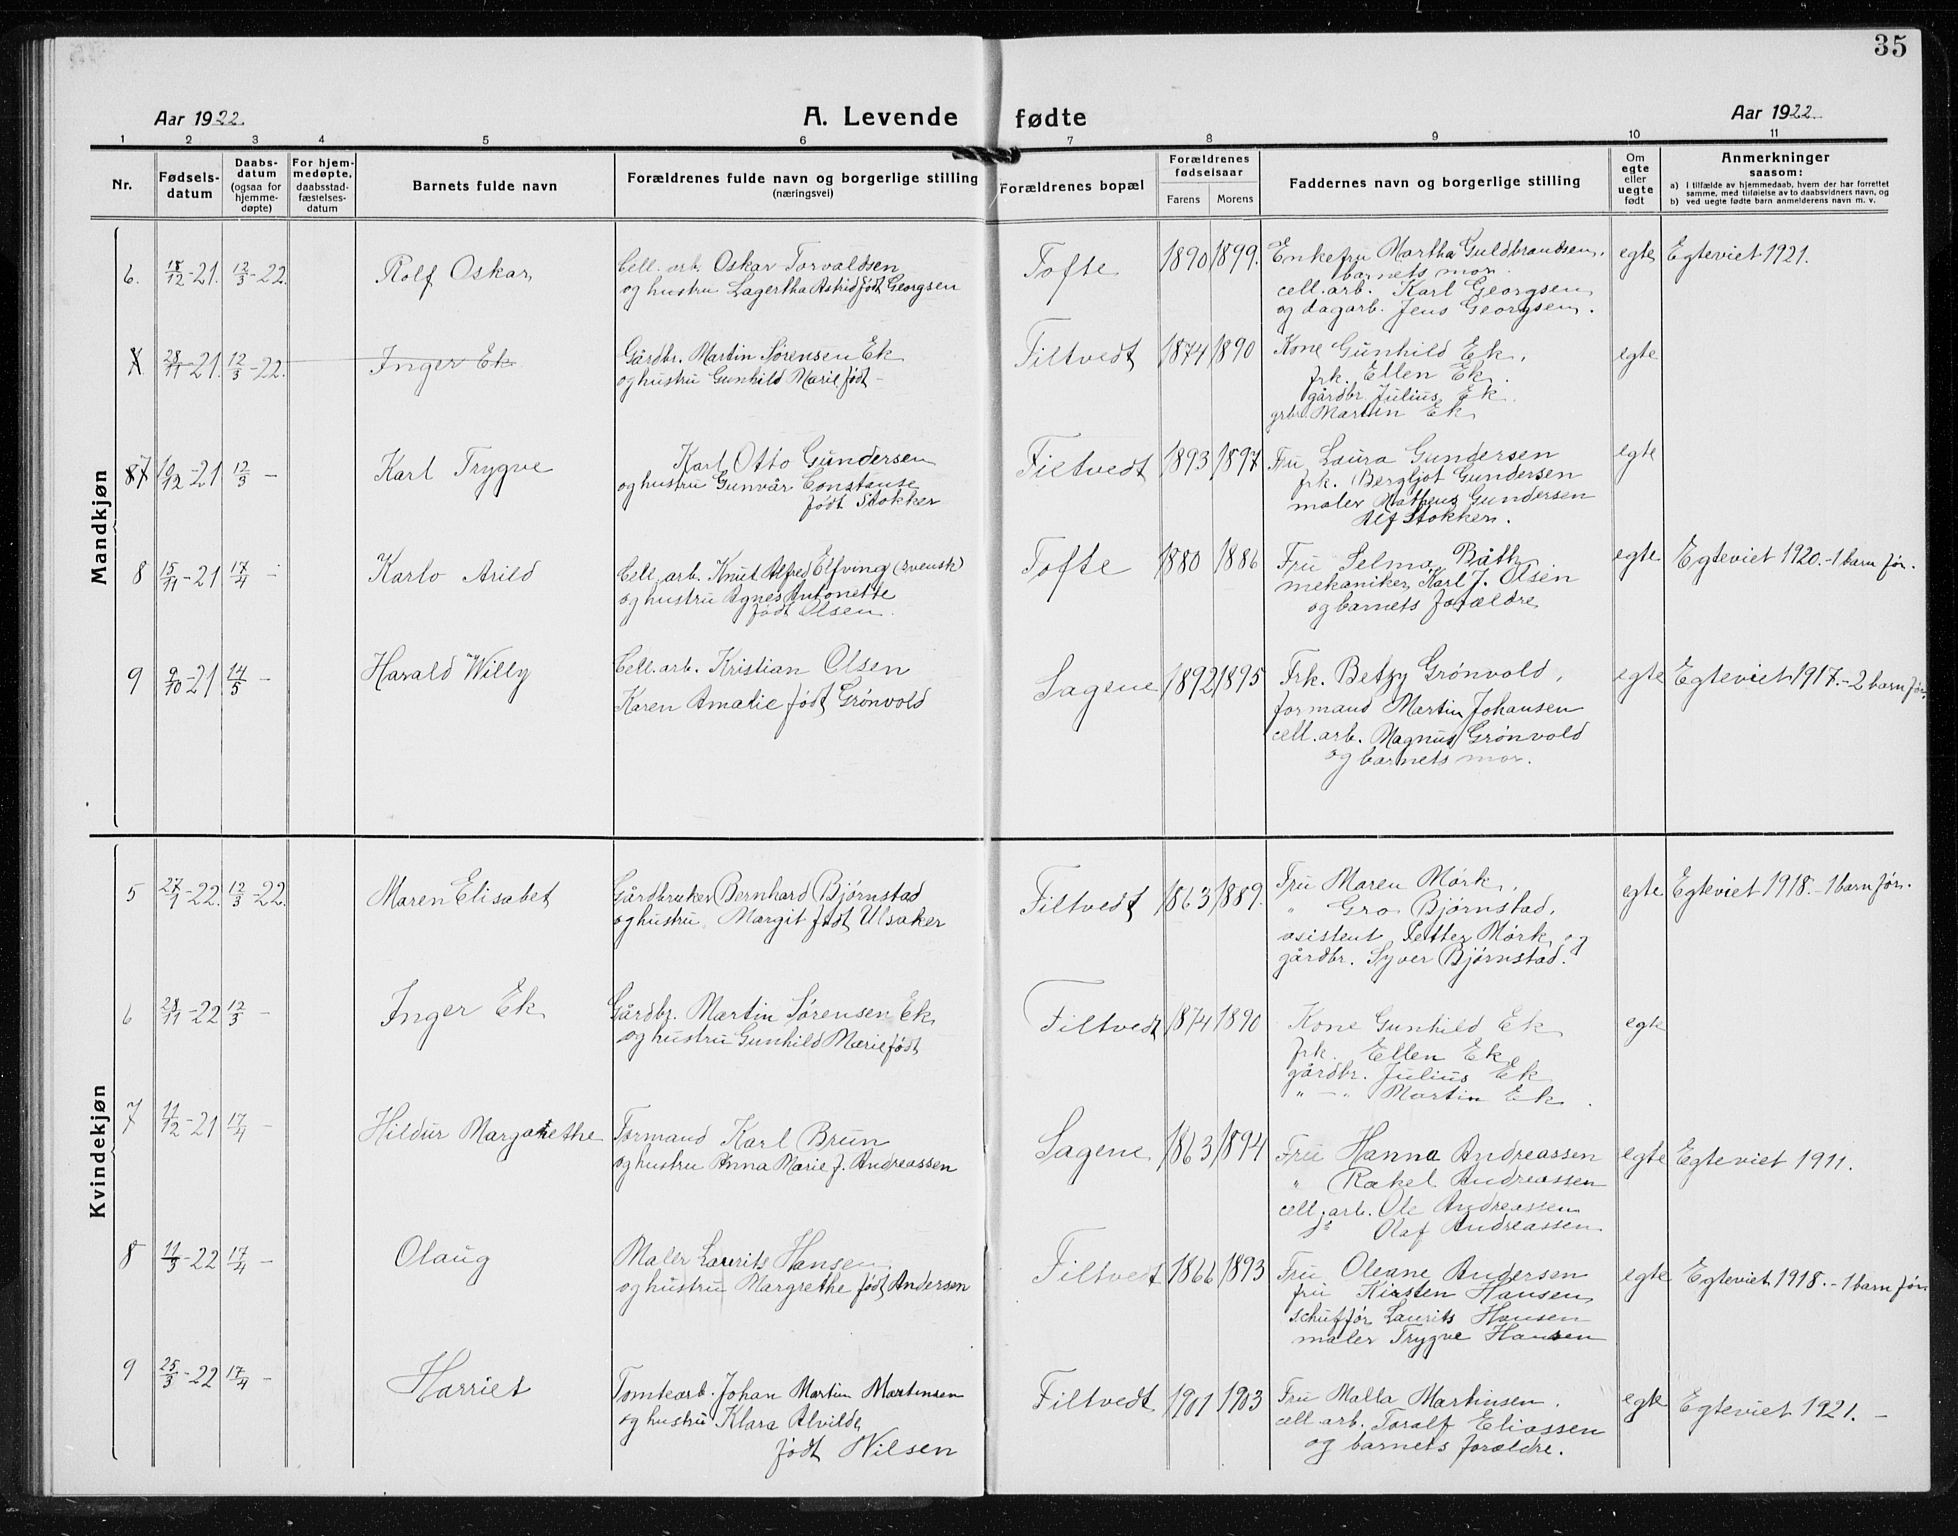 35
Aar 1922.
A. Levende fødte
Aar 1922.
1 2 3 4 5 6 7 8 9 10 11
Nr.
Fødsels-
datum
Daabs-
datum
(ogsaa for
hjemme-
døpte)
For hjem-
medøpte,
daabsstad-
fæstelses-
datum
Barnets fulde navn
Forældrenes fulde navn og borgerlige stilling
(næringsvei)
Forældrenes bopæl
Forældrenes
fødselsaar
Farens Morens
Faddernes navn og borgerlige stilling
Om
egte
eller
uegte
født
Anmerkninger
saasom:
a) I tilfælde av hjemmedaab, hvem der har forrettet
samme, med tilføielse av to daabsvidners navn, og
b) ved uegte fødte barn anmelderens navn m. v.
Mandkjøn
6. 18/12-21. 12/3-22. Rolf Oskar
Cell. arb. Oskar Torvaldsen
og hustru Lagertha Astrid født Georgsen
Tofte 1890 1899.
Enkefru Martha Guldbrandsen,
barnets mor.
cell. arb. Karl Georgsen
og dagarb. Jens Georgsen.
egte Egteviet 1921.
28/11-21. 12/3-22. Inger Ek
Gårdbr. Martin Sørensen Ek
og hustru Gunhild Marie født -
Filtvedt 1874 1890
Kone Gunhild Ek,
frk. Ellen Ek.
gårdbr. Julius Ek.
grbr. Martin Ek
egte
7 10/12-21 12/3 - Karl Trygve
Karl Otto Gundersen
og hustru Gunvår Constanse
født Stokker
Filtvedt 1893 1897
Fru Laura Gundersen
frk. Bergljot Gundersen
maler Matheus Gundersen
Alf Stokker.
egte
8 15/11-21 17/4 - Karlo Arild
Cell. arb. Knut Alfred Elfving (svensk)
og hustru Agnes Antonette
født Olsen.
Tofte 1880 1886
Fru Selma Båth
mekaniker Karl J. Olsen
og barnets forældre
egte Egteviet 1920. - 1 barn før.
9 9/10-21 14/5 - Harald Willy
Cell. arb. Kristian Olsen
Karen Amalie født Grønvold
Sagene 1892 1895
Frk. Betzy Grønvold,
formand Martin Johansen
cell. arb. Magnus Grønvold
og barnets mor.
egte Egteviet 1917. - 2 barn før.
Kvindekjøn
5 27/1-22. 12/3-22. Maren Elisabet
Gårdbruker Bernhard Bjørnstad
og hustru Margit født Ulsaker
Filtvedt 1863 1889.
Fru Maren Mørk,
" Gro Bjørnstad,
asistent Petter Mørk og
gårdbr. Syver Bjørnstad.
egte Egteviet 1918. - 1 barn før.
6 28/11-22 12/3 - Inger Ek
Gårdbr. Martin Sørensen Ek
og hustru Gunhild Marie født
Filtvedt 1874 1890
Kone Gunhild Ek
frk. Ellen Ek
gårdbr. Julius Ek
" - " Martin Ek.
egte
7 11/12-21 17/4 - Hildur Margarethe
Formand Karl Brun
og hustru Anna Marie f. Andreassen
Sagene 1863 1894
Fru Hanna Andreassen
" Rakel Andreassen
cell. arb. Ole Andreassen
ds Olaf Andreassen
egte Egteviet 1911.
8 11/3-22 17/4 - Olaug
Maler Laurits Hansen
og hustru Margrethe født Andersen
Filtvedt 1866 1893
Fru Oleane Andersen
fru Kirsten Hansen
schuffør Laurits Hansen
maler Trygve Hansen
egte Egteviet 1918. - 1 barn før
9 25/3-22 17/4 - Harriet
Tomtearb. Johan Martin Martinsen
og hustru Klara Alvilde
født Nilsen
Filtvedt 1901 1903
Fru Malla Martinsen.
cell. arb. Toralf Eliassen
og barnets forældre.
egte Egteviet 1921. -